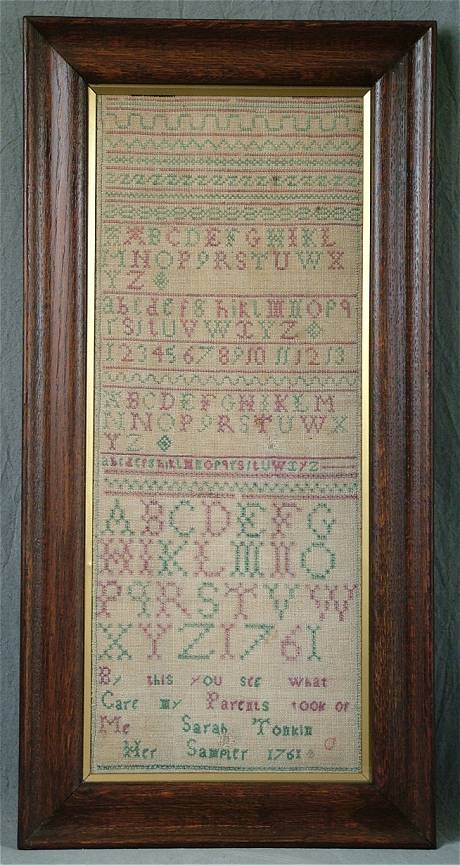 A B C D E F G H I K L
M N O P Q R S T U W X
Y Z
a b c d e f g h i k l m n o p q
r s ſ t U V W X Y Z
1 2 3 4 5 6 7 8 9 10 11 12 13
A B C D E F G H I K L M
N N O P Q R S T U W X
Y Z
a b c d e f g h i k l m n o p q r s ſ t U W X Y Z
A B C D E F G
H I K L M N O
P Q R S T V W
X Y Z 1761
By this you see what
Care my Parents took of
Me Sarah Tonkin
Her Sampler 1761